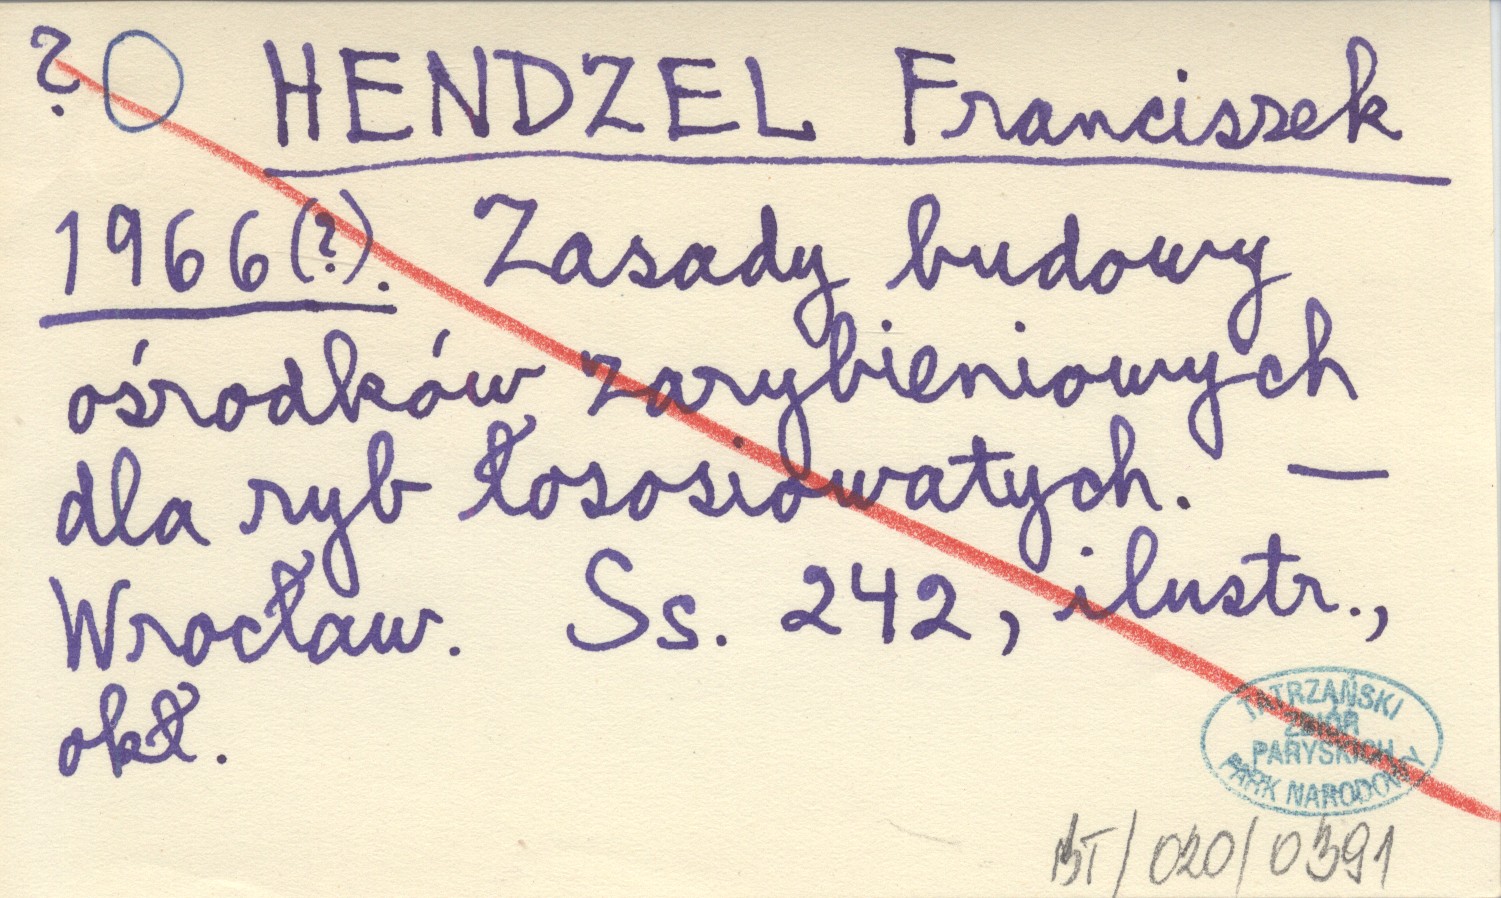 ? HENDZEL Franciszek
1966(?). Zasady budowy
ośrodków zarybieniowych
dla ryb łososiowatych. —
Wrocław. Ss. 242, ilustr.,
okł.
TATRZAŃSKI
ZBIÓR
PARYSKICH
PARK NARODOWY
BT/020/0391